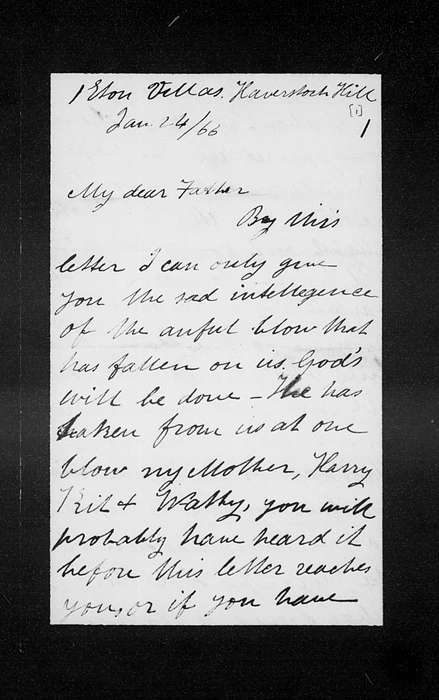 1 Eton Villas. Haverstock Hill
[1]
Jan 24/66
1
My dear Father
By this
letter I can only give
you the sad intellegence
of the awful blow that
has fallen on us. God's
will be done - He has
taken from us at one
blow my Mother, Harry
& Wathy, you will
probably have heard it
before this letter reaches
you, or if you have